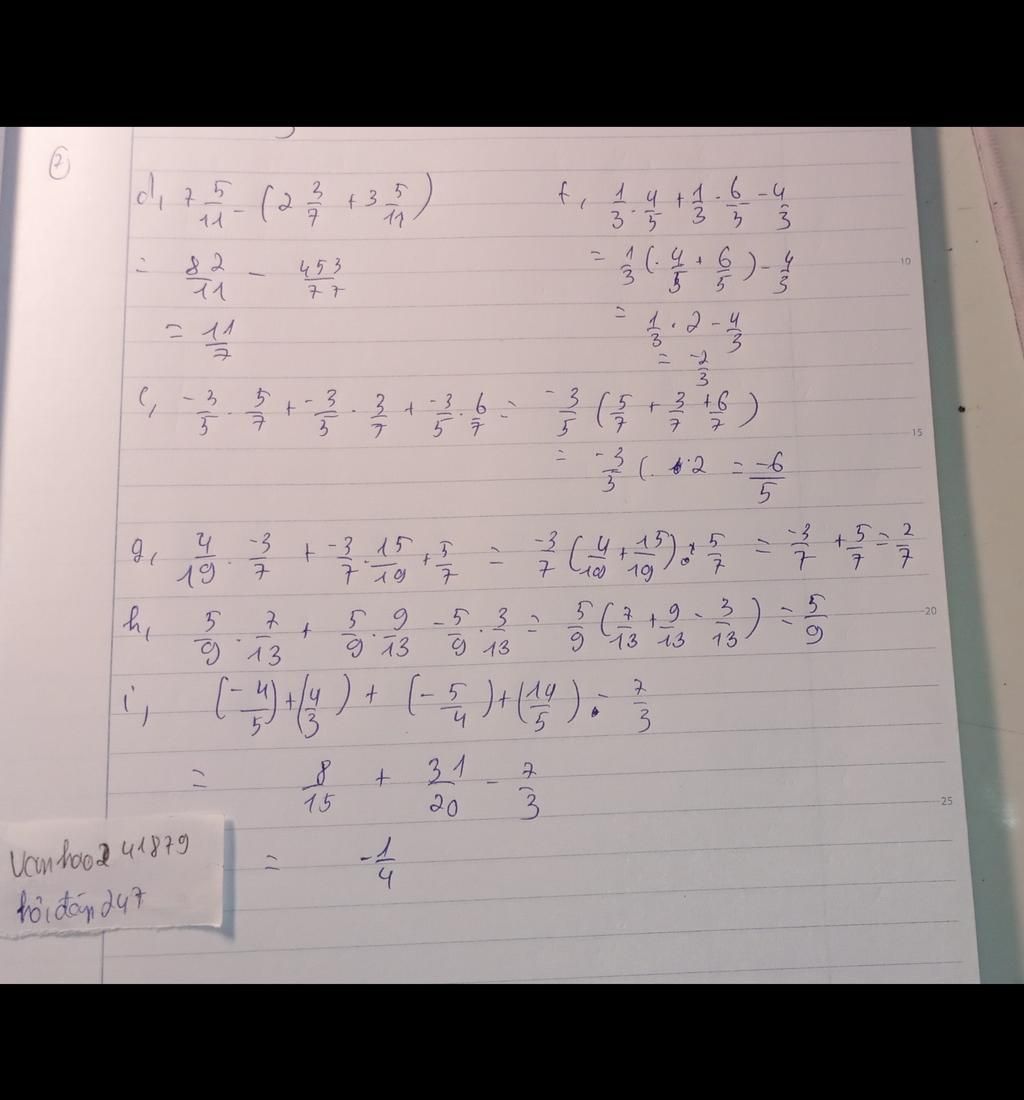 2
d, 7 5/11 - (2 3/7 + 3 5/11)
= 82/11 - 453/77
= 11/7
f, 1/3 . 4/5 + 1/3 . 6/5 - 4/3
= 1/3 (. 4/5 + 6/5) - 4/3
= 1/3 . 2 - 4/3
= -2/3
e, -3/5 . 5/7 + -3/5 . 3/7 + -3/5 . 6/7 = -3/5 (5/7 + 3/7 + 6/7)
= -3/5 ( . 2 = -6/5
g, 4/19 . -3/7 + -3/7 . 15/19 + 5/7 = -3/7 (4/19 + 15/19) + 5/7 = -3/7 + 5/7 = 2/7
h, 5/9 . 7/13 + 5/9 . 9/13 - 5/9 . 3/13 = 5/9 (7/13 + 9/13 - 3/13) = 5/9
i, (-4/5) + (4/3) + (-5/4) + (14/5) - 7/3
= 8/15 + 31/20 - 7/3
= -1/4
Vanhao241879
hỏi đáp 247
10
15
20
25